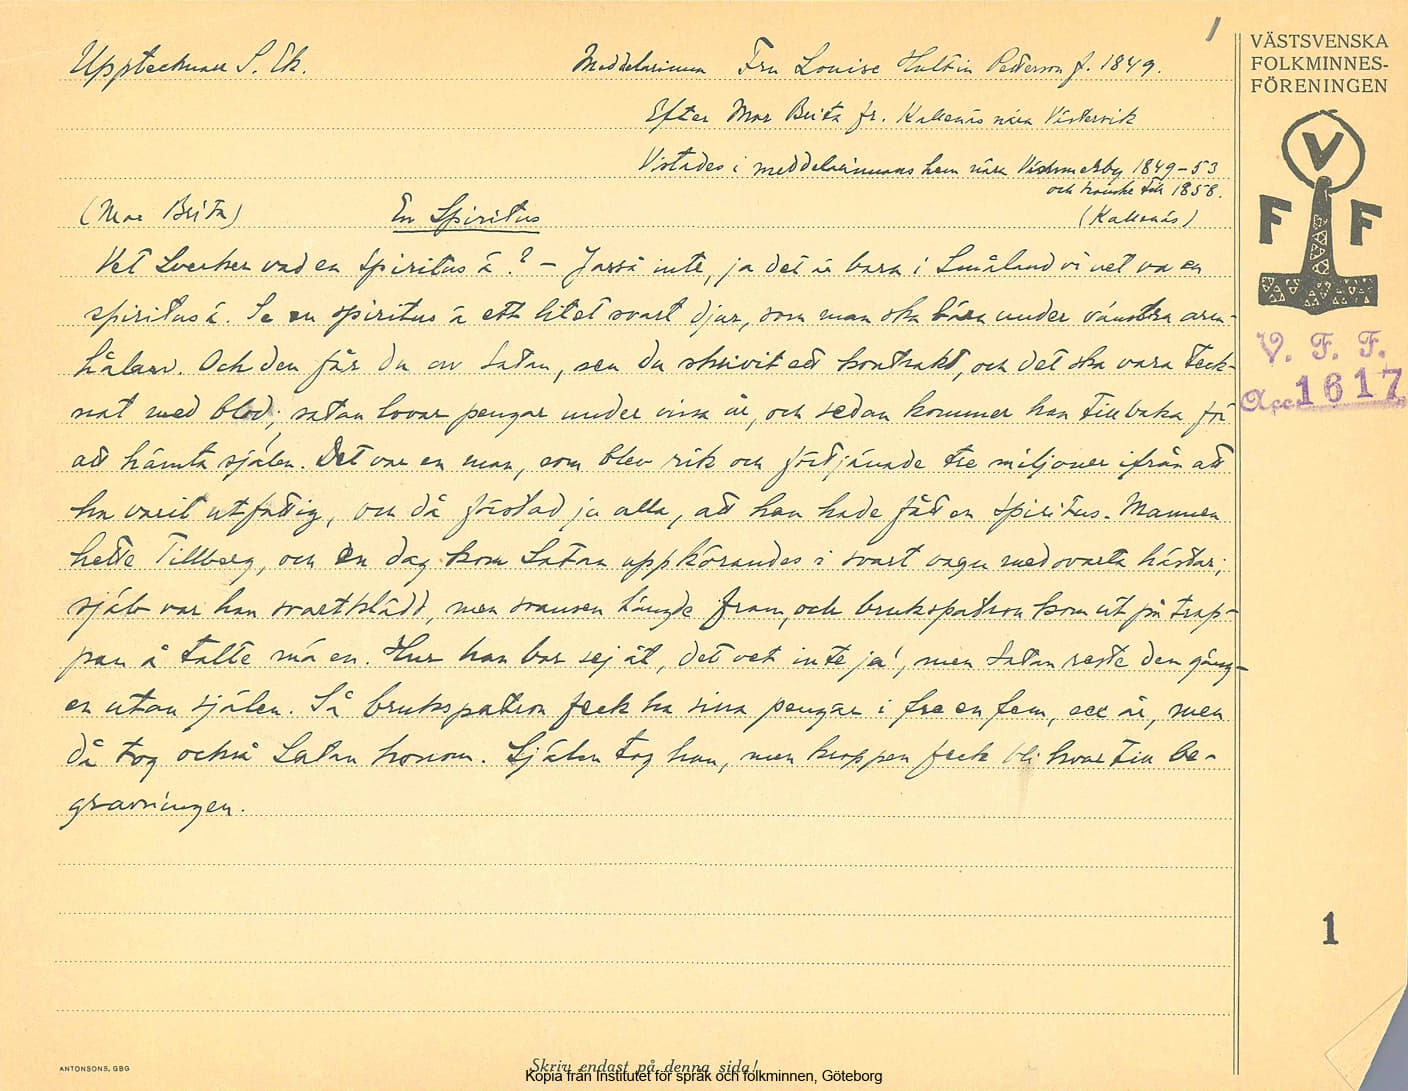 1
VÄSTSVENSKA
FOLKMINNES-
FÖRENINGEN
V
F F
V. F. F.
Acc. 1617
Upptecknat S. Ek. Meddelarinna Fru Louise Hultin Petterson f. 1849.
Efter Mor Brita fr. Kallenäs nära Västervik
Vistades i meddelarinnans hem nära Vimmerby 1849-53
och kanske till 1858.
(Mor Brita) En Spiritus (Kallenäs)
Vet Sverker vad en Spiritus ä? – Jasså inte, ja det är bara i Småland vi vet va en
spiritus ä. Se en spiritus ä ett litet svart djur, som man ska bära under vänstra arm-
hålan. Och den får du av Satan, sen du skrivit ett kontrakt, och det ska vara teck-
nat med blod; satan lovar pengar under vissa år, och sedan kommer han tillbaka för
att hämta själen. Det var en man, som blev rik och förtjänade tre miljoner ifrån att
ha varit utfattig, och då förstod ju alla, att han hade fått en Spiritus. Mannen
hette Tillberg, och en dag kom Satan uppkörandes i svart vagn med svarta hästar;
själv var han svartklädd, men svansen hängde fram, och brukspatron kom ut på trap-
pan å talte mä en. Hur han bar sej åt, det vet inte ja', men Satan reste den gång-
en utan själen. Så brukspatron feck ha sina pengar i fre en fem, sex år, men
då tog också Satan honom. Själen tog han, men kroppen feck bli kvar till be-
gravningen.
1
ANTONSONS, GBG
Skriv endast på denna sida!
Kopia från Institutet för språk och folkminnen, Göteborg